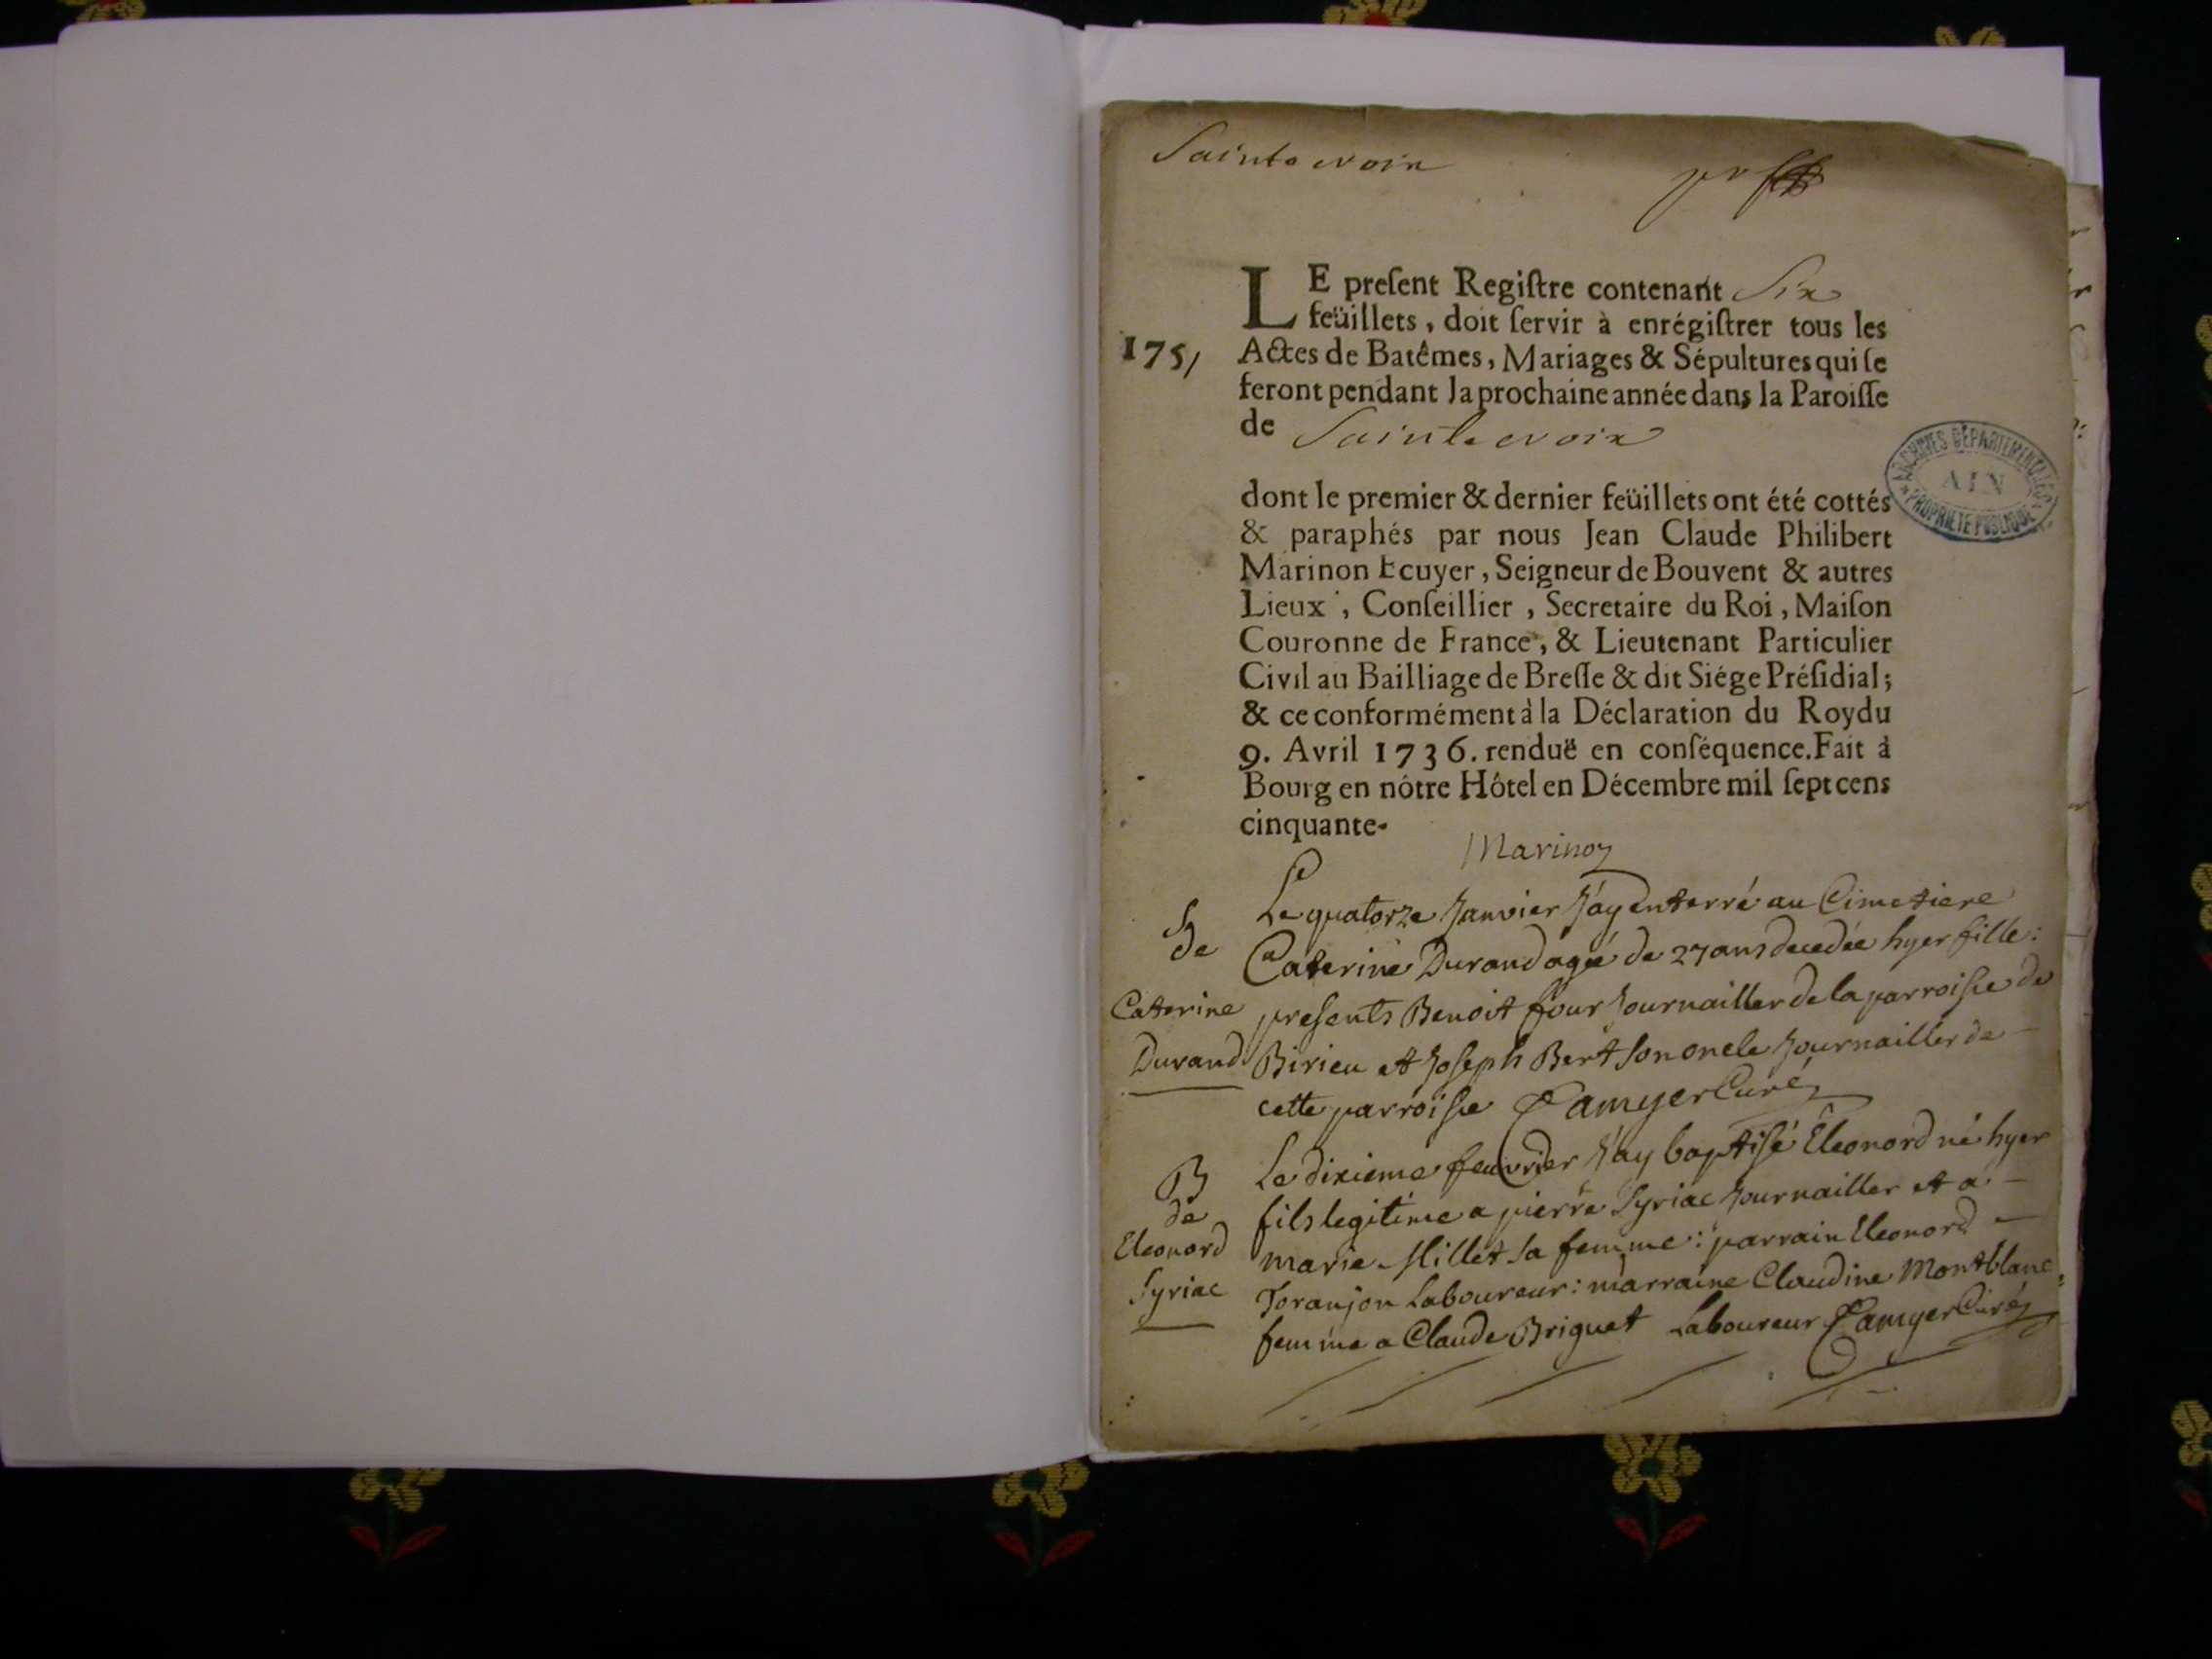 Sainte croix
pr
LE preſent Regiſtre contenant Six
feüillets, doit ſervir à enrégiſtrer tous les
1751 Actes de Batêmes, Mariages & Sépultures qui ſe
feront pendant la prochaine année dans la Paroiſſe
de Sainte croix
ARCHIVES DÉPARTEMENTALES
AIN
PROPRIÉTÉ PUBLIQUE
dont le premier & dernier feüillets ont été cottés
& paraphés par nous Jean Claude Philibert
Marinon Ecuyer, Seigneur de Bouvent & autres
Lieux, Conſeillier, Secretaire du Roi, Maiſon
Couronne de France, & Lieutenant Particulier
Civil au Bailliage de Breſſe & dit Siége Préſidial;
& ce conformément à la Déclaration du Roy du
9. Avril 1736. renduë en conſéquence. Fait à
Bourg en nôtre Hôtel en Décembre mil ſept cens
cinquante-
Marinon
S
de
Caterine
Durand
Le quatorze Janvier J'ay enterré au Cimetiere
Caterine Durand agé de 27 ans decedée hyer fille:
presents Benoit four Journailler de la parroisse de
Birieu et Joseph Bert son oncle Journailler de
cette parroisse Camyer Curé
B
de
Eleonord
Syriac
Le dixieme feuvrier J'ay baptisé Eleonord né hyer
fils legitime a pierre Syriac Journailler et a
marie Millet sa femme: parrain Eleonord
Toranjon Laboureur: marraine Claudine Montblanc
femme a Claude Briguet Laboureur Camyer Curé